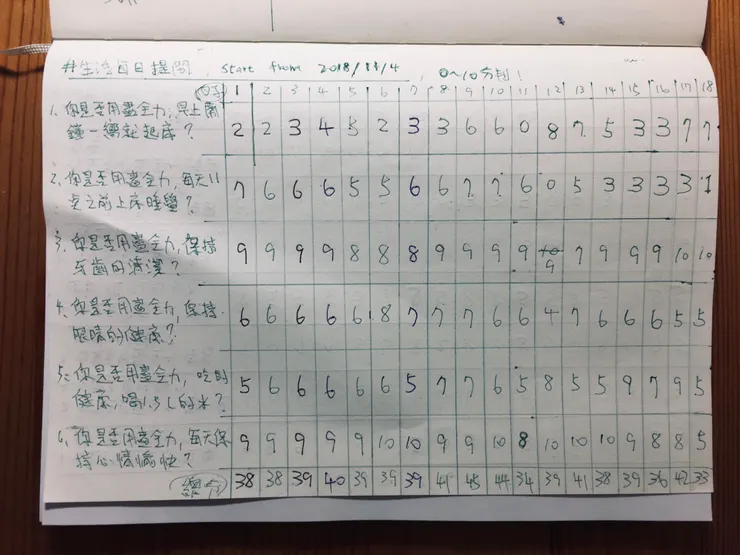 #生活百日提問, start from 2018/11/4, 0~10分制!
日子 1 2 3 4 5 6 7 8 9 10 11 12 13 14 15 16 17 18
1. 你是否用盡全力,早上鬧
鐘一響就起床? 2 2 3 4 5 2 3 3 6 6 0 8 7 5 3 3 7 7
2. 你是否用盡全力,每天11
點之前上床睡覺? 7 6 6 6 5 5 6 6 7 7 6 0 5 3 3 3 3 1
3. 你是否用盡全力,保持
牙齒的清潔? 9 9 9 9 8 8 8 9 9 9 9 10 7 9 9 9 10 10
9
4. 你是否用盡全力,保持
眼睛的健康? 6 6 6 6 6 8 7 7 7 6 6 4 7 6 6 6 5 5
5. 你是否用盡全力,吃的
健康,喝1.5L的水? 5 6 6 6 6 6 5 7 7 6 5 8 5 5 9 7 9 5
6. 你是否用盡全力,每天保
持心情愉快? 9 9 9 9 9 10 10 9 9 10 8 10 10 10 9 8 8 5
總分 38 38 39 40 39 39 39 41 45 44 34 39 41 38 39 36 42 33